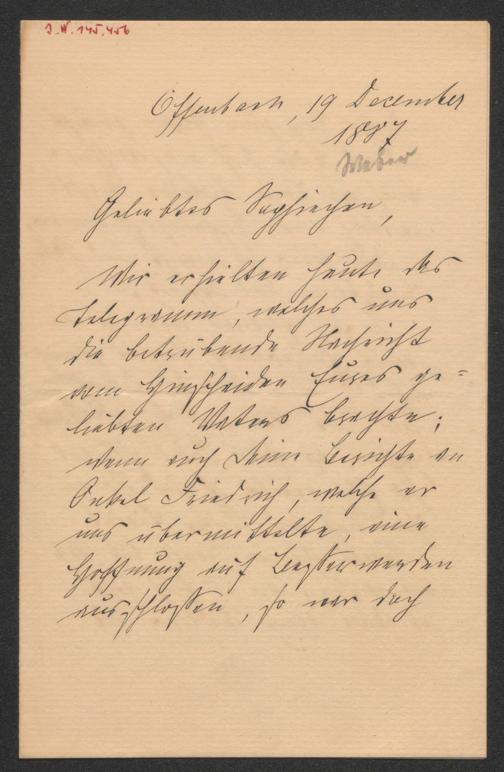 J.N. 145.456
Offenbach, 19 December
1887
Weber
Geliebtes Sophiechen,
Wir erhielten heute das
Telegramm, welches uns
die betrübende Nachricht
vom Hinscheiden Eures ge=
liebten Vaters brachte;
wenn auch Deine Berichte an
Onkel Friedrich, welche er
uns übermittelte, eine
Hoffnung auf Besserwerden
ausschlossen, so war doch